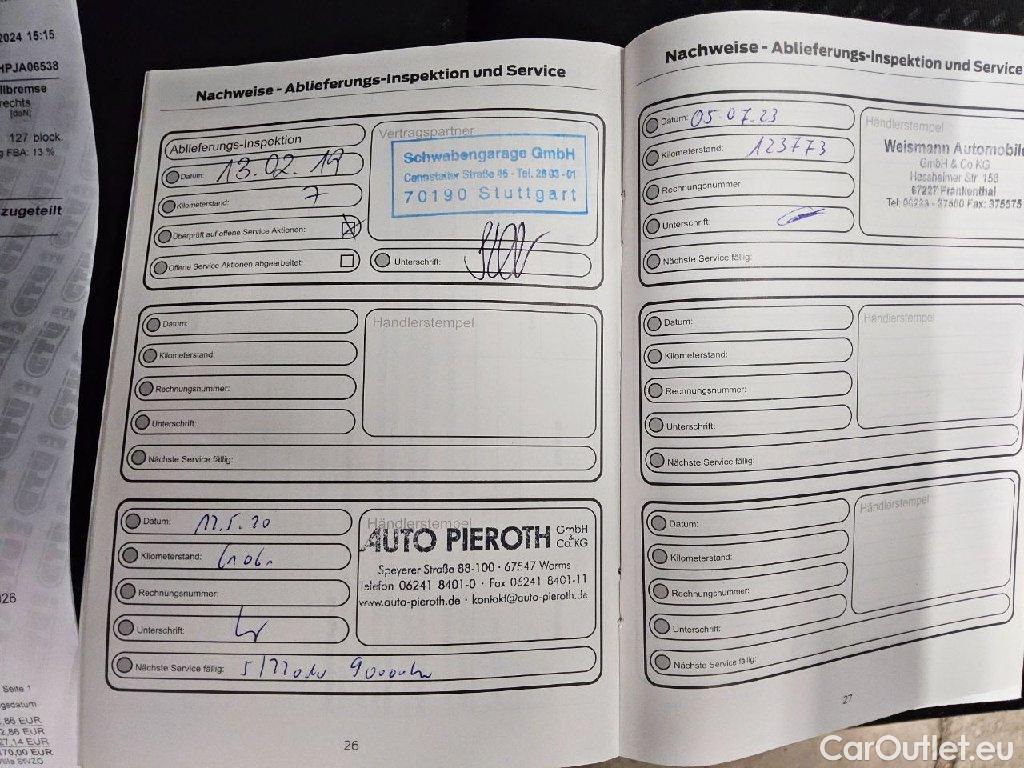 2024 15:15
HPJA06538
llbremse
rechts
[daN]
127 block
g FBA: 13 %
zugeteilt
026
Seite 1
gsdatum
,86 EUR
2,86 EUR
27,14 EUR
170,00 EUR
Nachweise - Ablieferungs-Inspektion und Service
Ablieferungs-Inspektion
Datum: 13.02.19
Kilometerstand: 7
Überprüft auf offene Service Aktionen:
Offene Service Aktionen abgearbeitet:
Vertragspartner
Schwabengarage GmbH
Cannstatter Straße 46 - Tel. 28 03 - 01
70190 Stuttgart
Unterschrift:
Datum:
Kilometerstand:
Rechnungsnummer:
Unterschrift:
Nächste Service fällig:
Händlerstempel
Datum: 12.5.20
Kilometerstand:
Rechnungsnummer:
Unterschrift:
Nächste Service fällig:
Händlerstempel
AUTO PIEROTH GmbH & Co.KG
Speyerer Straße 88-100 · 67547 Worms
Telefon 06241 8401-0 · Fax 06241 8401-11
www.auto-pieroth.de · kontakt@auto-pieroth.de
26
Nachweise - Ablieferungs-Inspektion und Service
Datum: 05.07.23
Kilometerstand: 123773
Rechnungsnummer
Unterschrift:
Nächste Service fällig:
Händlerstempel
Weismann Automobile
GmbH & Co KG
Hessheimer Str 158
67227 Frankenthal
Tel 06233 - 37560 Fax: 375575
Datum:
Kilometerstand:
Rechnungsnummer:
Unterschrift:
Nächste Service fällig:
Händlerstempel
Datum:
Kilometerstand:
Rechnungsnummer:
Unterschrift:
Nächste Service fällig:
Händlerstempel
27
CarOutlet.eu